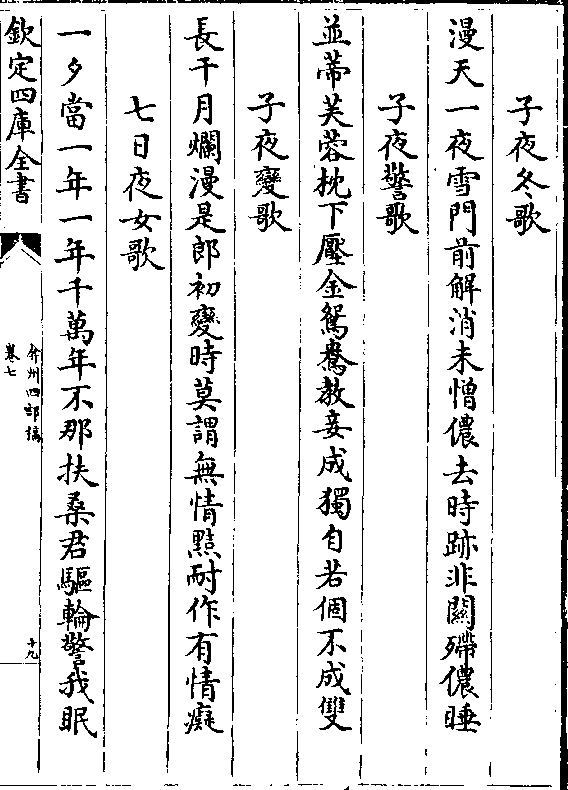 子夜冬歌
漫天一夜雪門前解消未憎儂去時跡非關殢儂睡
子夜警歌
並蒂芙蓉枕下壓金鴛鴦教妾成獨自若個不成雙
子夜變歌
長干月爛漫是郎初變時莫謂無情黠耐作有情癡
七日夜女歌
一夕當一年一年千萬年不那扶桑君驅輪警我眠
欽定四庫全書
弇州四部稿
卷七
十九